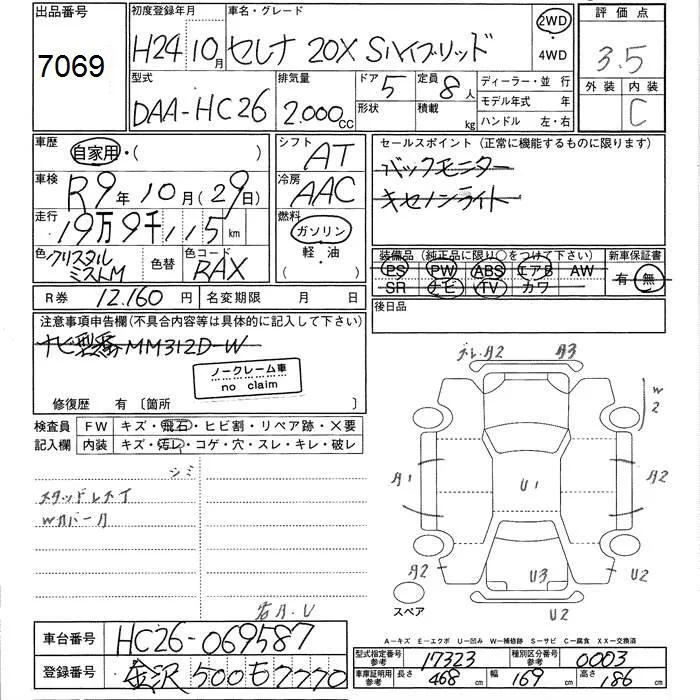 出品番号
7069
初度登録年月
H24 10月
車名・グレード
セレナ 20X Sハイブリッド
2WD
4WD
評価点
3.5
外装 内装
C
型式
DAA-HC26
排気量
2.000cc
ドア 5
形状
定員 8人
積載 kg
ディーラー・並行
モデル年式 年
ハンドル 左・右
車歴
自家用・( )
車検
R9年10月(29日)
走行
19万9千115km
色 クリスタルミストM
色替
色コード RAX
シフト
AT
冷房
AAC
燃料
ガソリン
軽・油
( ・ )
セールスポイント(正常に機能するものに限ります)
バックモニター
キセノンライト
装備品(純正品に限り○をつけて下さい)
PS PW ABS エアB AW
SR ナビ TV カワ
新車保証書
有・無
後日品
R券 12.160円
名変期限 月 日
注意事項申告欄(不具合内容等は具体的に記入して下さい)
ナビ型番 MM312D-W
ノークレーム車
no claim
修復歴 有〔箇所 〕
検査員
記入欄
FW キズ・飛石・ヒビ割・リペア跡・×要
内装 キズ・汚レ・コゲ・穴・スレ・キレ・破レ
シミ
Wカバー
A2
A3
W2
A1
U1
A2
A2
U3
U2
U2
スペア
A−キズ E−エクボ U−凹み W−補修跡 S−サビ C−腐食 XX−交換済
車台番号
HC26-069587
登録番号
金沢 500 も 7770
型式指定番号
参考
17323
種別区分番号
参考
0003
車庫証明用
参考
長さ 468cm
幅 169cm
高さ 186cm